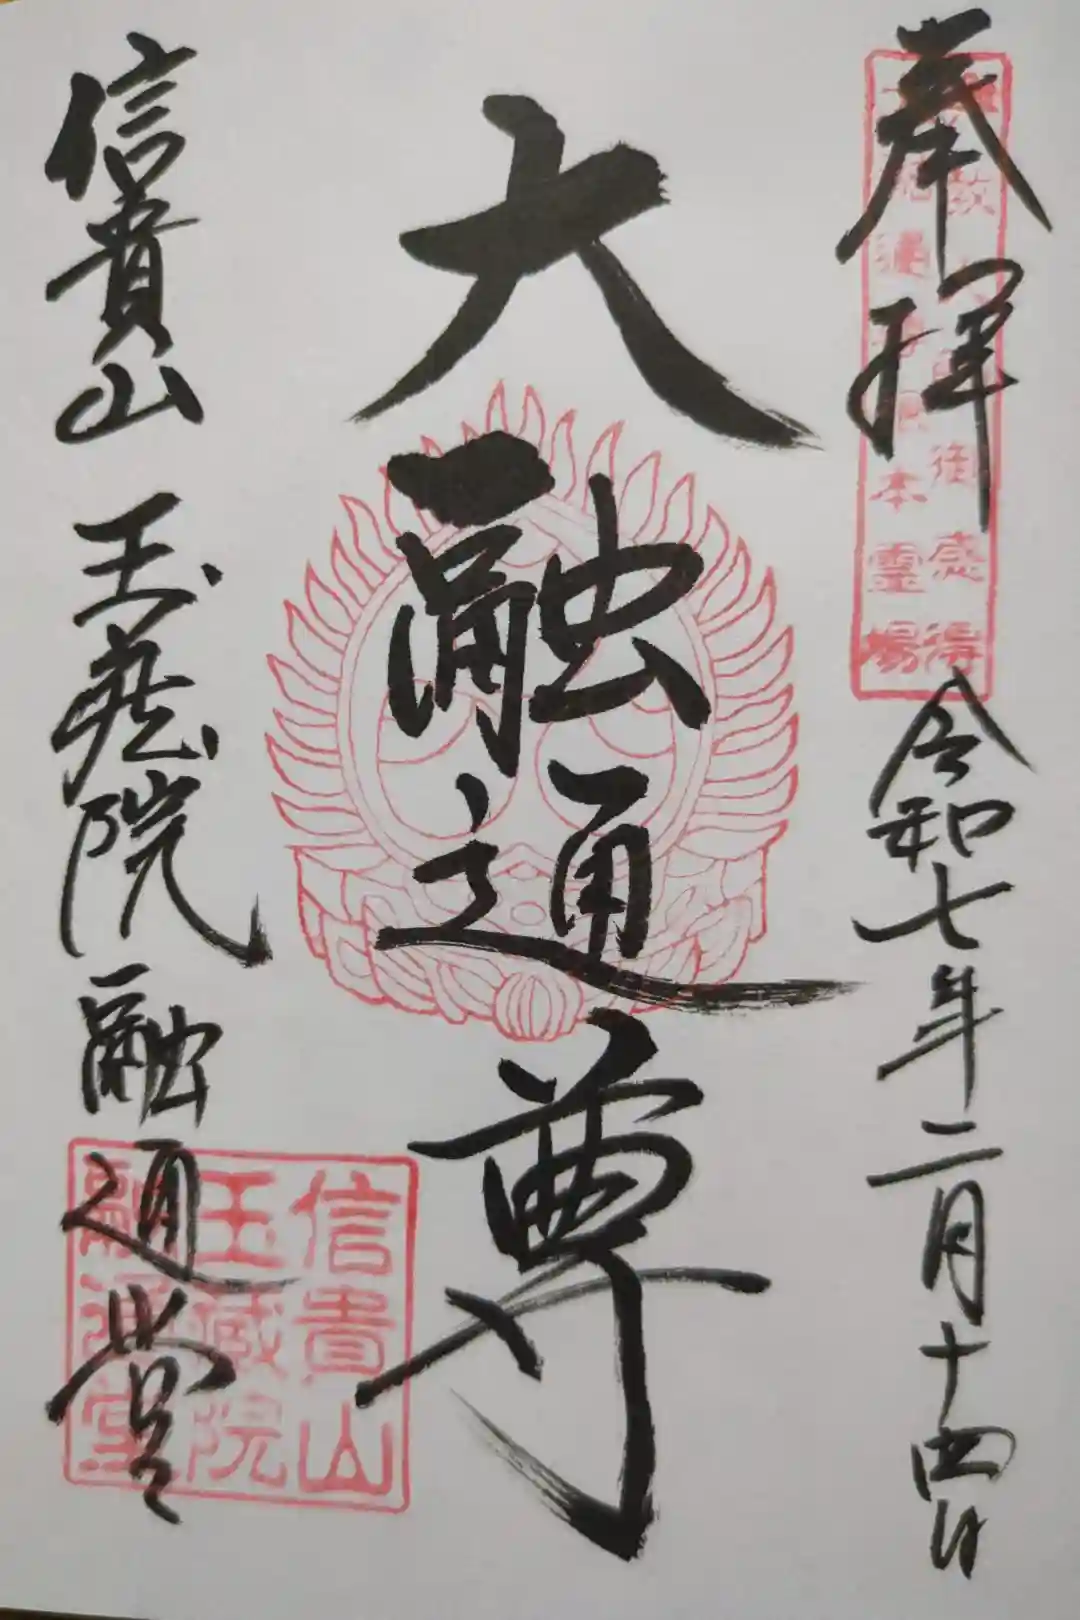 奉拝
令和七年二月十四日
大融通尊
信貴山 玉蔵院 融通堂
御感得
本霊場
信貴山
玉蔵院
融通堂